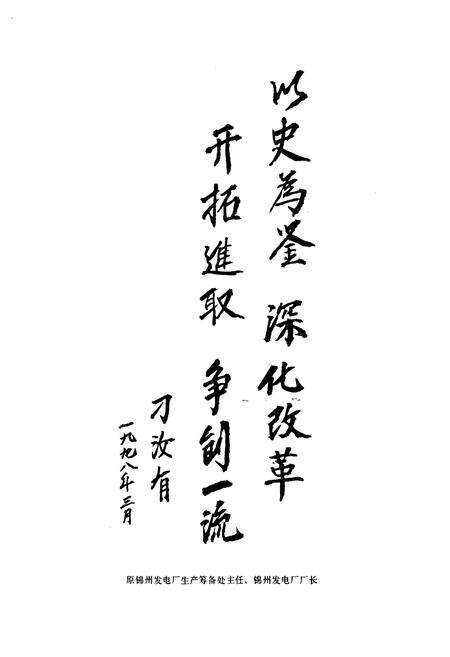 以史為鉴 深化改革
开拓進取 争创一流
刁汝有
一九九八年三月
原锦州发电厂生产筹备处主任、锦州发电厂厂长